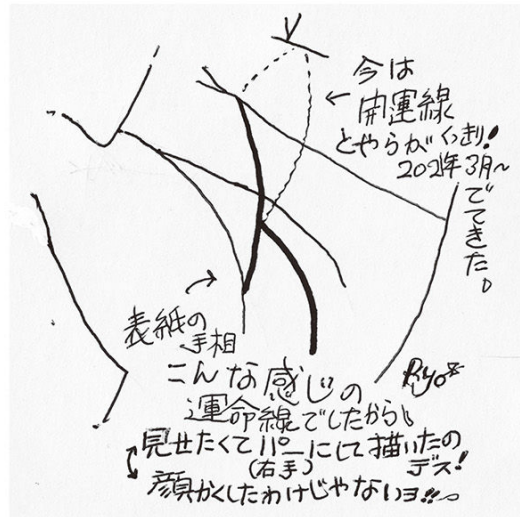 今は
← 開運線
とやらがくっきり!
2021年3月~
でてきた。
表紙の
手相
こんな感じの
運命線でしたから。
Ryo*
見せたくてパーにして描いたの
(右手) デス!
顔かくしたわけじゃないヨ!!